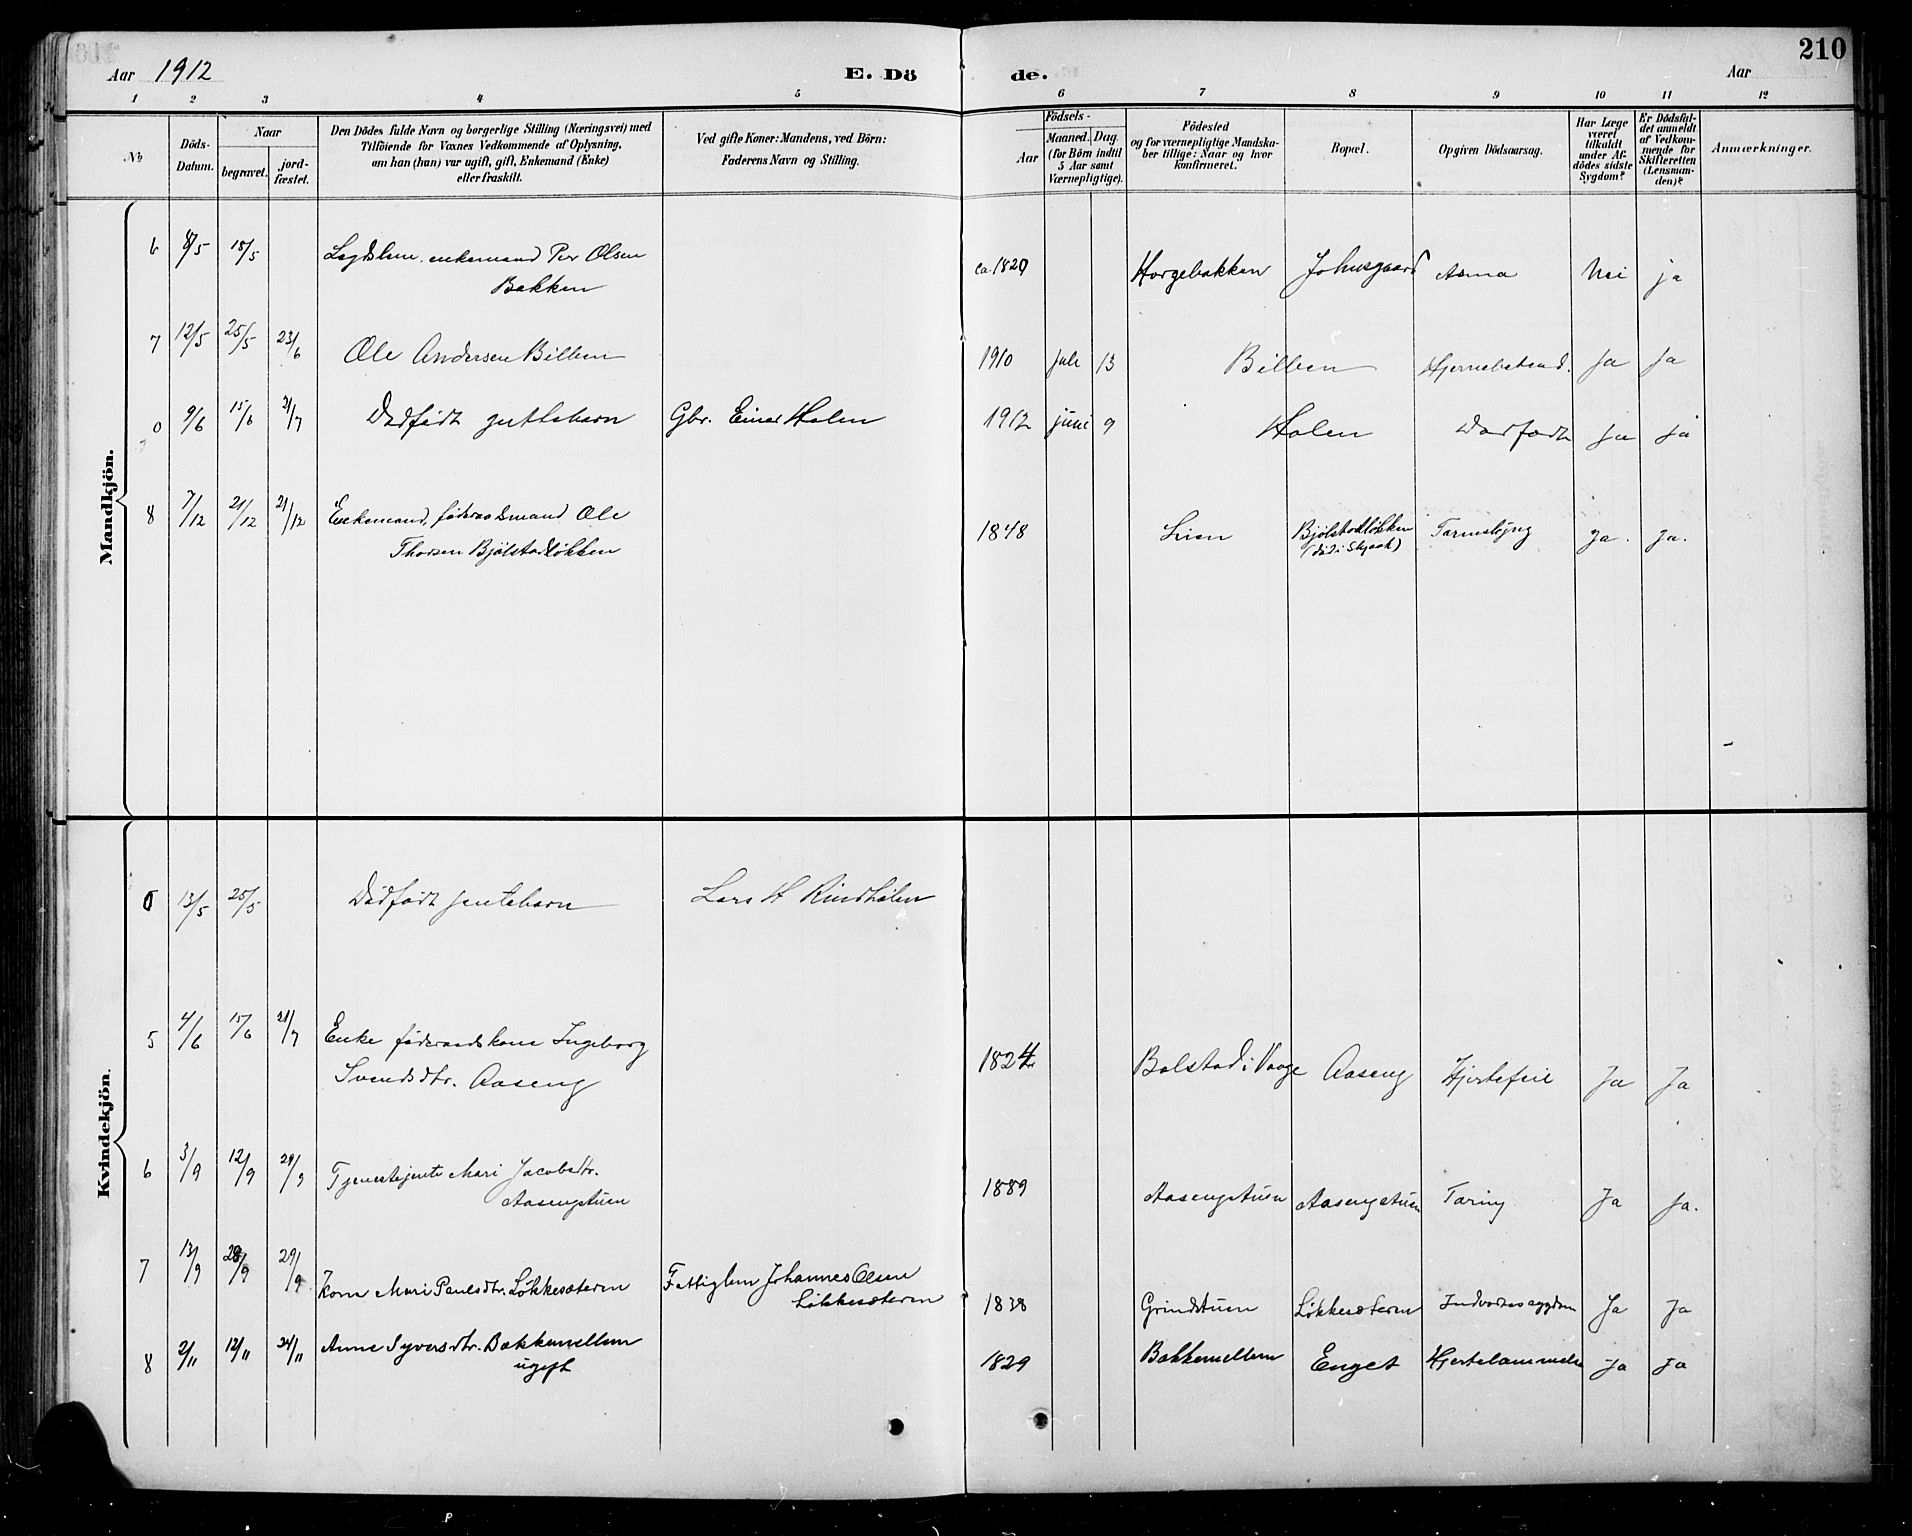 210
Aar 1912 E. Dö de. Aar
1 2 3 4 5 6 7 8 9 10 11 12
№
Döds-Datum.
Naar
begravet.
jord-fæstet.
Den Dödes fulde Navn og borgerlige Stilling (Næringsvei) med
Tilföiende for Voxnes Vedkommende af Oplysning,
om han (hun) var ugift, gift, Enkemand (Enke)
eller fraskilt.
Ved gifte Koner: Mandens, ved Börn:
Faderens Navn og Stilling.
Födsels-
Aar
Maaned. Dag
(for Börn indtil
5 Aar samt
Værnepligtige).
Födested
og for værnepligtige Mandska-
ber tillige: Naar og hvor
konfirmeret.
Bopæl.
Opgiven Dödsaarsag.
Har Læge
været
tilkaldt
under Af-
dödes sidste
Sygdom?
Er Dödsfal-
det anmeldt
af Vedkom-
mende for
Skifteretten
(Lensman-
den)?
Anmærkninger.
Mandkjön.
6 8/5 18/5 Lægdslem. enkemand Per Olsen
Bakken
ca. 1820 Horgebakken Johnsgaard Asma Nei ja
7 12/5 25/5 23/6 Ole Andersen Bilben 1910 juli 13 Bilben Hjernebetænd. Ja Ja
0 9/6 15/6 21/7 Dødfødt guttebarn Gbr. Einar Holen 1912 juni 9 Holen Dødfødt Ja Ja
8 7/12 21/12 21/12 Enkemand, føderaadsmand Ole
Thorsen Bjølstadløkken
1848 Lien Bjølstadløkken Tarmslyng Ja. Ja.
(död i Skjaak)
Kvindekjön.
0 13/5 25/5 Dødfødt jentebarn Lars H Rindhølen
5 4/6 15/6 21/7 Enke føderaadskone Ingeborg
Svendsdtr. Aaseng
1824 Bolstad i Vaage Aaseng Hjertefeil Ja Ja
6 3/9 12/9 29/9 Tjenestejente Mari Jacobsdtr.
Aasengstuen
1889 Aasengstuen Aasengstuen Tæring Ja Ja.
7 13/9 28/9 29/9 Kone Mari Paulsdtr. Løkkesæteren Fattiglem Johannes Olsen
Løkkesæteren
1838 Grindstuen Løkkesæteren Indvortes sygdom Ja Ja
8 2/11 12/11 24/11 Anne Syversdtr. Bakkemellem
ugift
1829 Bakkemellem Enget Hjertelammelse Ja Ja